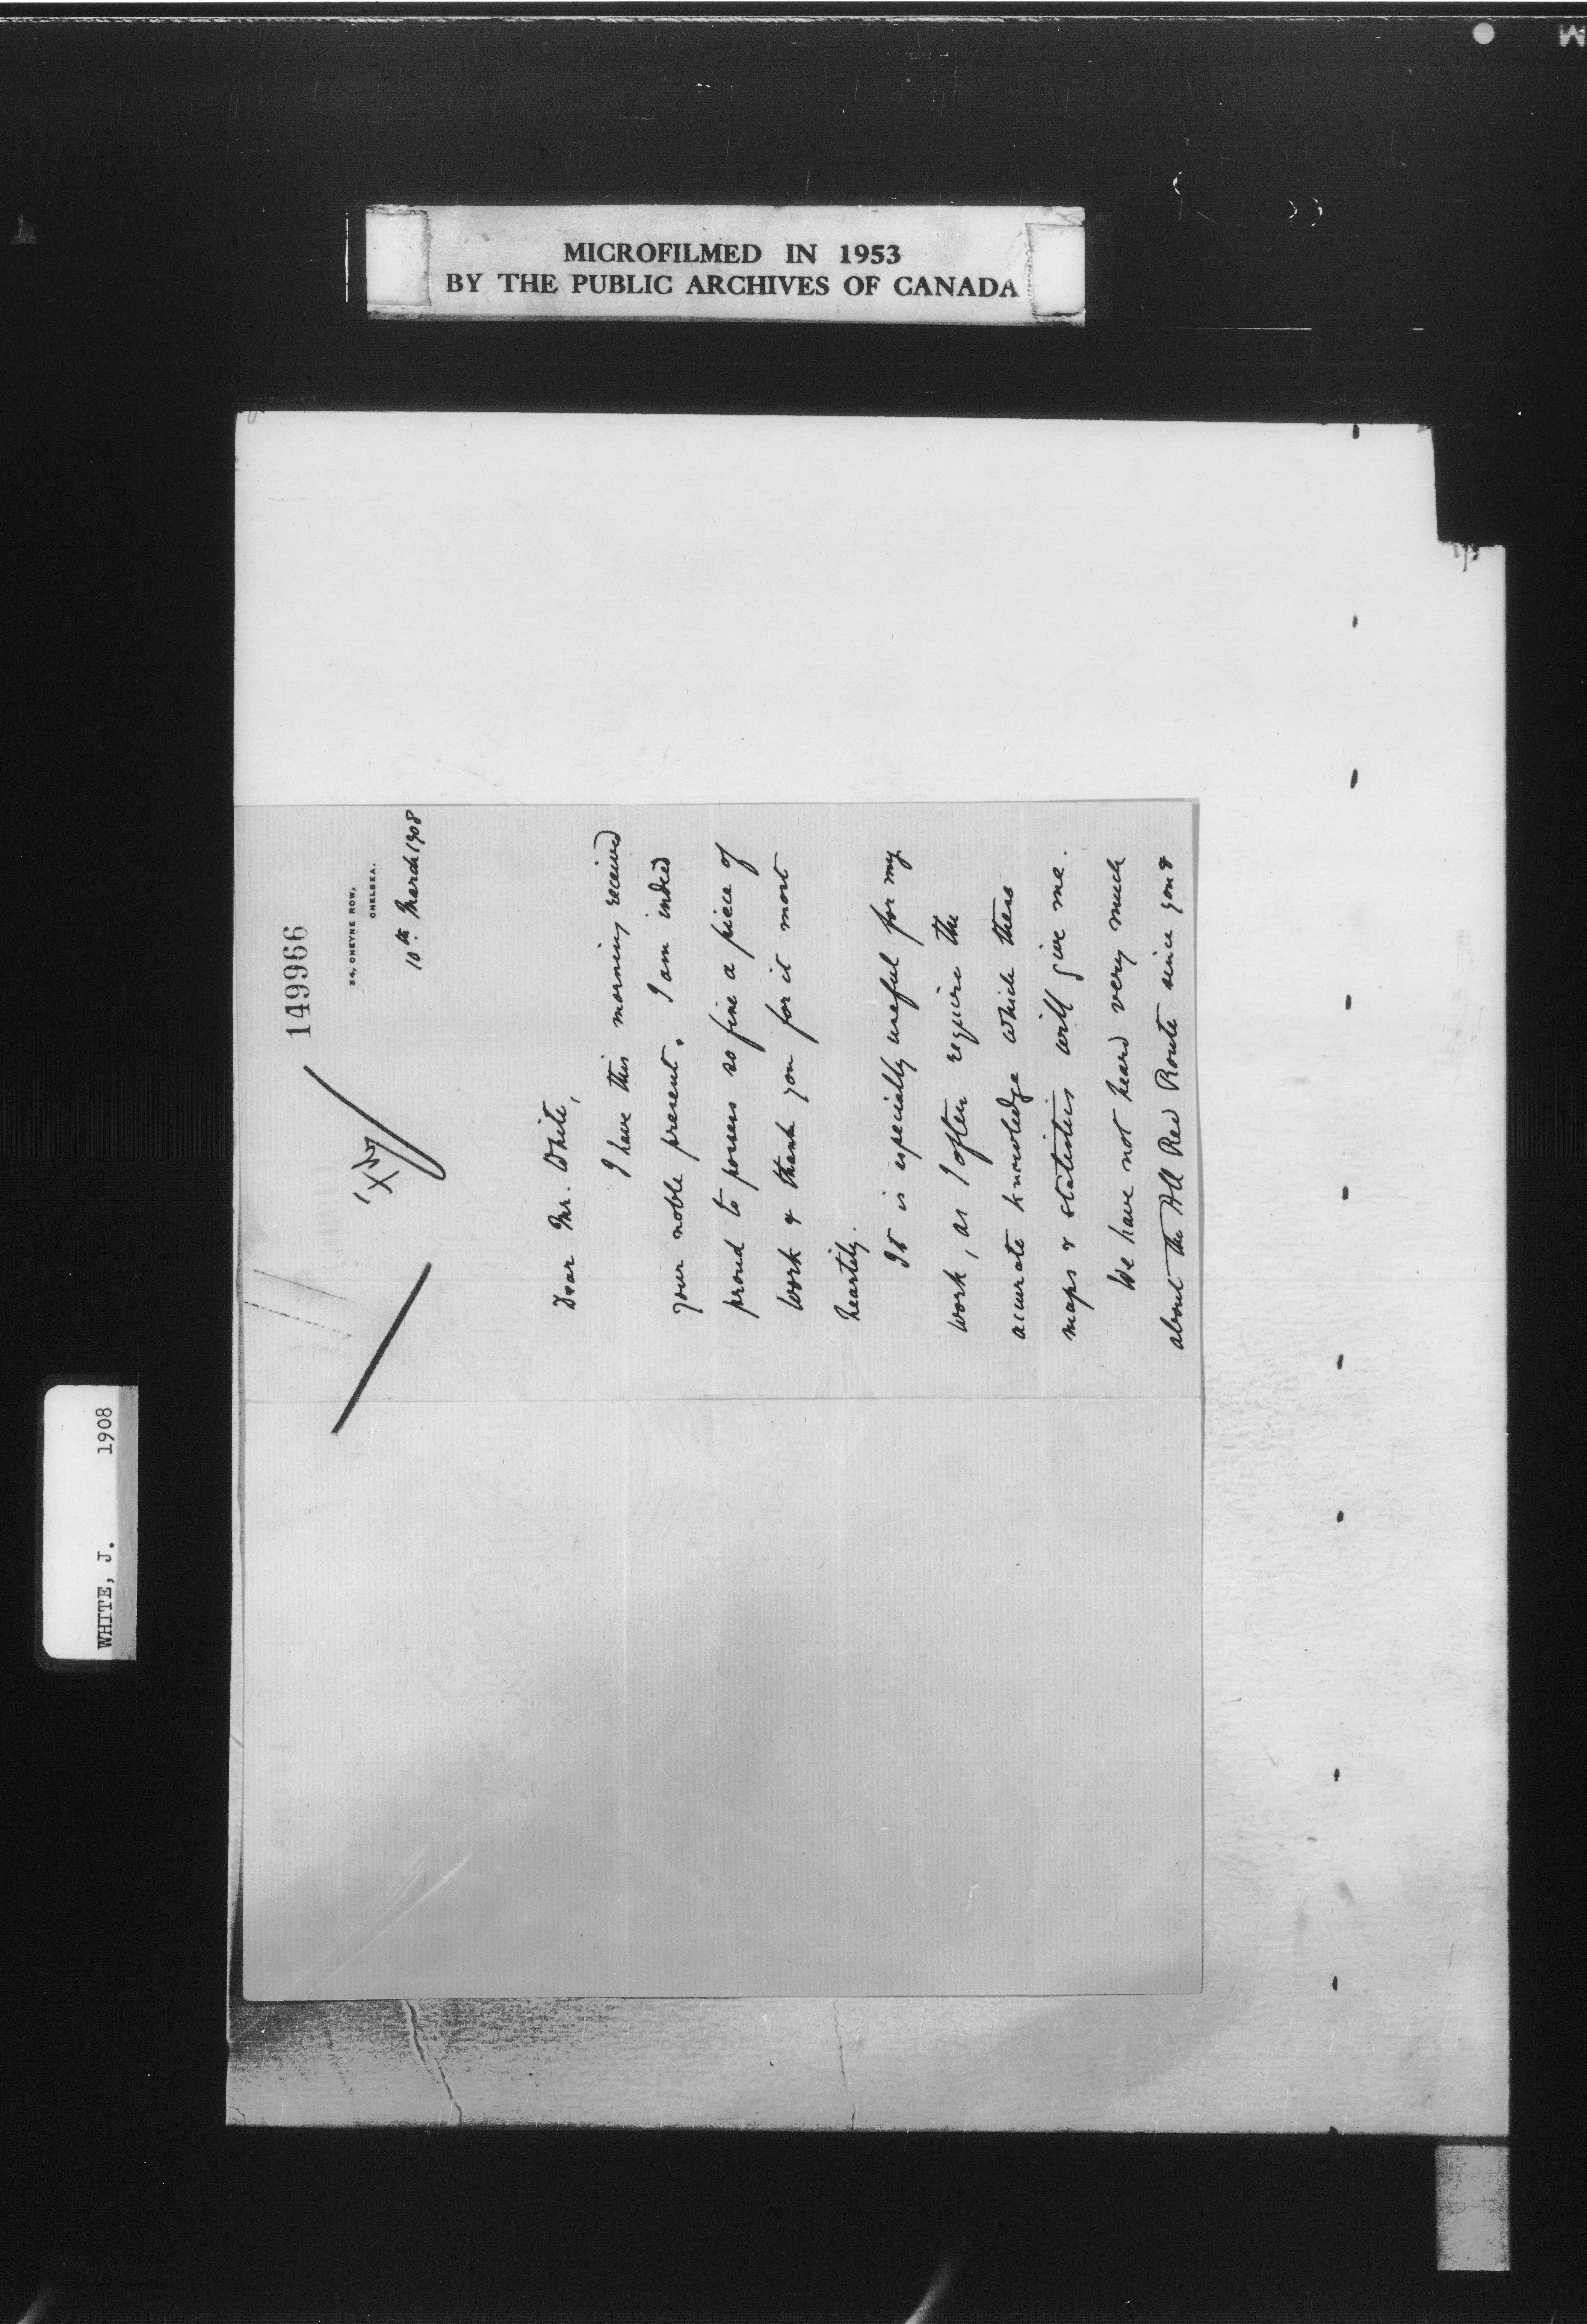 MICROFILMED IN 1953
BY THE PUBLIC ARCHIVES OF CANADA
WHITE, J. 1908
149966
34, CHEYNE ROW,
CHELSEA.
10th March 1908
Dear Mr. White,
I have this morning received
your noble present. I am indeed
proud to possess so fine a piece of
work & thank you for it most
heartily.
It is especially useful for my
work, as I often require the
accurate knowledge which these
maps & statistics will give me.
We have not heard very much
about the All Red Route since you &